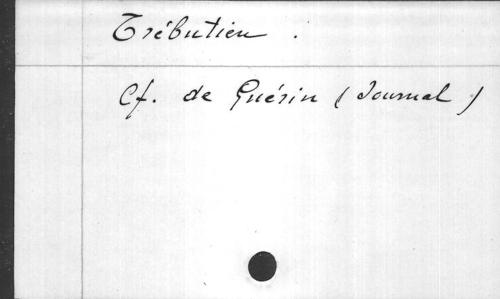 Trébutien .
Cf. de Guérin ( Journal )